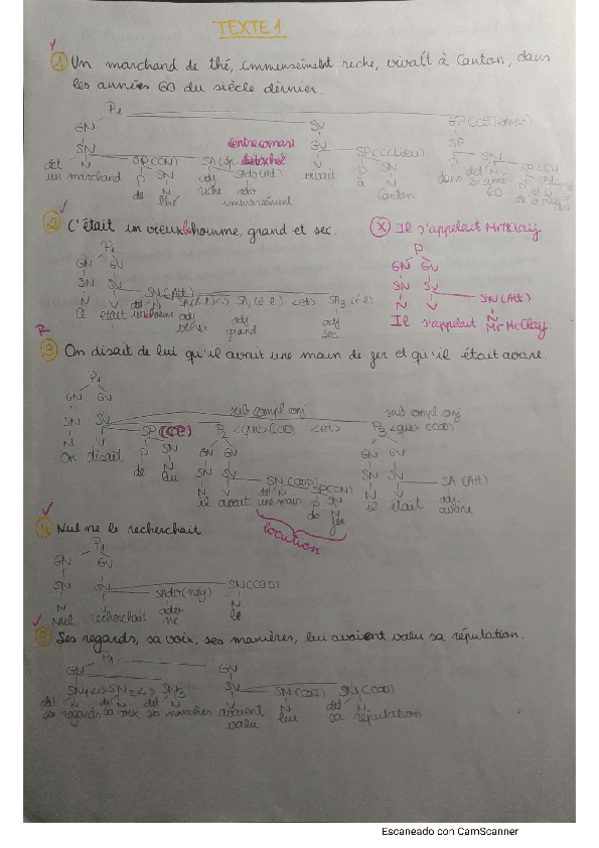 TEXTE 1
① Un marchand de thé, immensément riche, vivait à Canton, dans
les années 60 du siècle dernier.
P1
GN SV GP (CCTemps)
SN V SP
dét N SP(CN) SP(CCLieu) SN
un marchand de thé riche immensément vivait à Canton dans les années 60
② C'était un vieux homme, grand et sec. Ⓧ Il s'appelait Mc Clay
P1 P
GN GV GN GV
SN SV SN (Att) SN SV SN (Att)
N V dét N N V N
C' était grand sec Il s'appelait Mc Clay
③ On disait de lui qu'il avait une main de fer et qu'il était avare.
P1
GN GV sub compl conj sub compl conj
SN SV SP (COI) P2 <que> (COD) <et> P3 <que> (COD)
N V P SN GN GV GN GV
On disait de lui SN SV SN (COD) SN SV SA (Att)
il avait une main de fer il était avare
locution
④ Nul ne le recherchait
P1
GN GV
SN SV SAdv (nég) SN (COD)
N V adv N
Nul recherchait ne le
⑤ Ses regards, sa voix, ses manières, lui avaient valu sa réputation.
P1
GN GV
SN1 <,> SN2 <,> SN3 SV SN (COI) SN (COD)
dét N dét N dét N V N dét N
ses regards sa voix ses manières avaient valu lui sa réputation
Escaneado con CamScanner